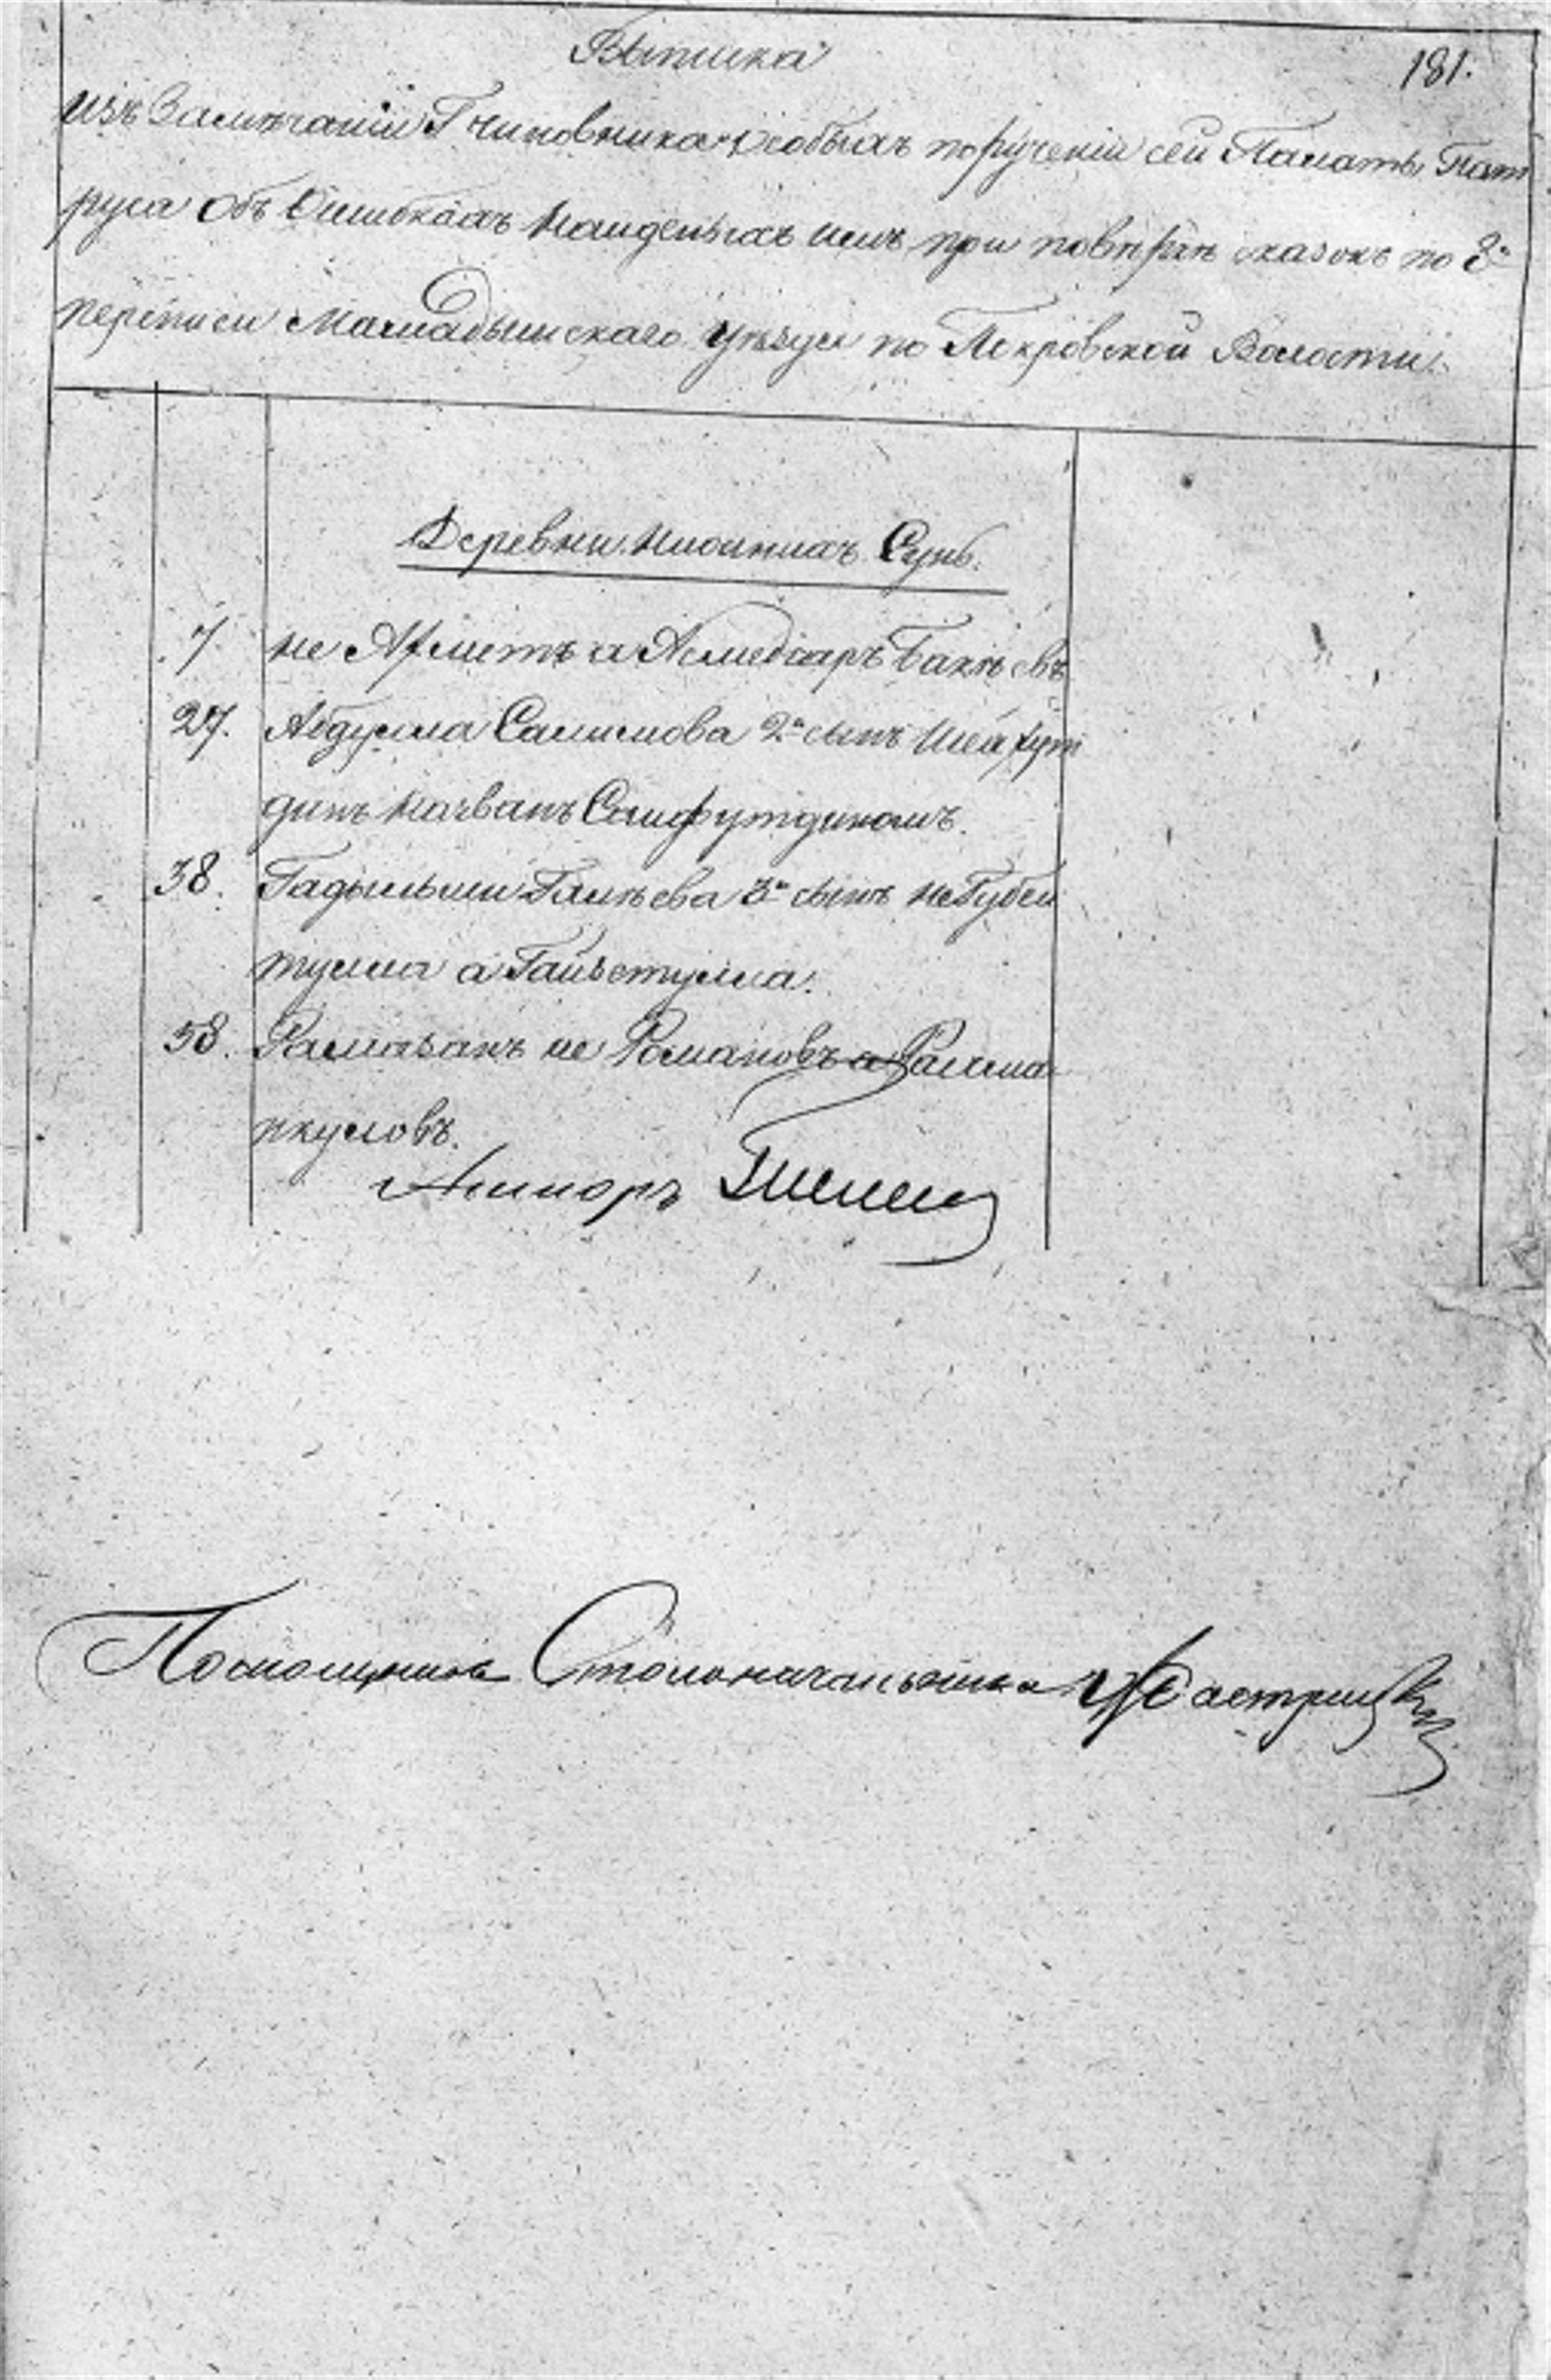 Выписка
181.
изъ Замѣчаній Г чиновника особыхъ порученій сей Палаты Пат
руса объ Ошибкахъ найденыхъ имъ при повѣркѣ сказокъ по 8й
переписи Мамадышскаго уѣзда по Покровской Волости.
Деревни Нижнихъ Сунь.
7. не Ахметъ а Ахмедзяръ Бакѣевъ
27. Абдулла Салимова 2й сынъ Шеафут
динъ названъ Сайфутдиномъ.
38. Гадыльши Галѣева 3й сынъ не Губей
тулла а Гайзетулла.
58. Рамазанъ не Романовъ а Рахма
нкуловъ.
Помощникъ Столоначальника